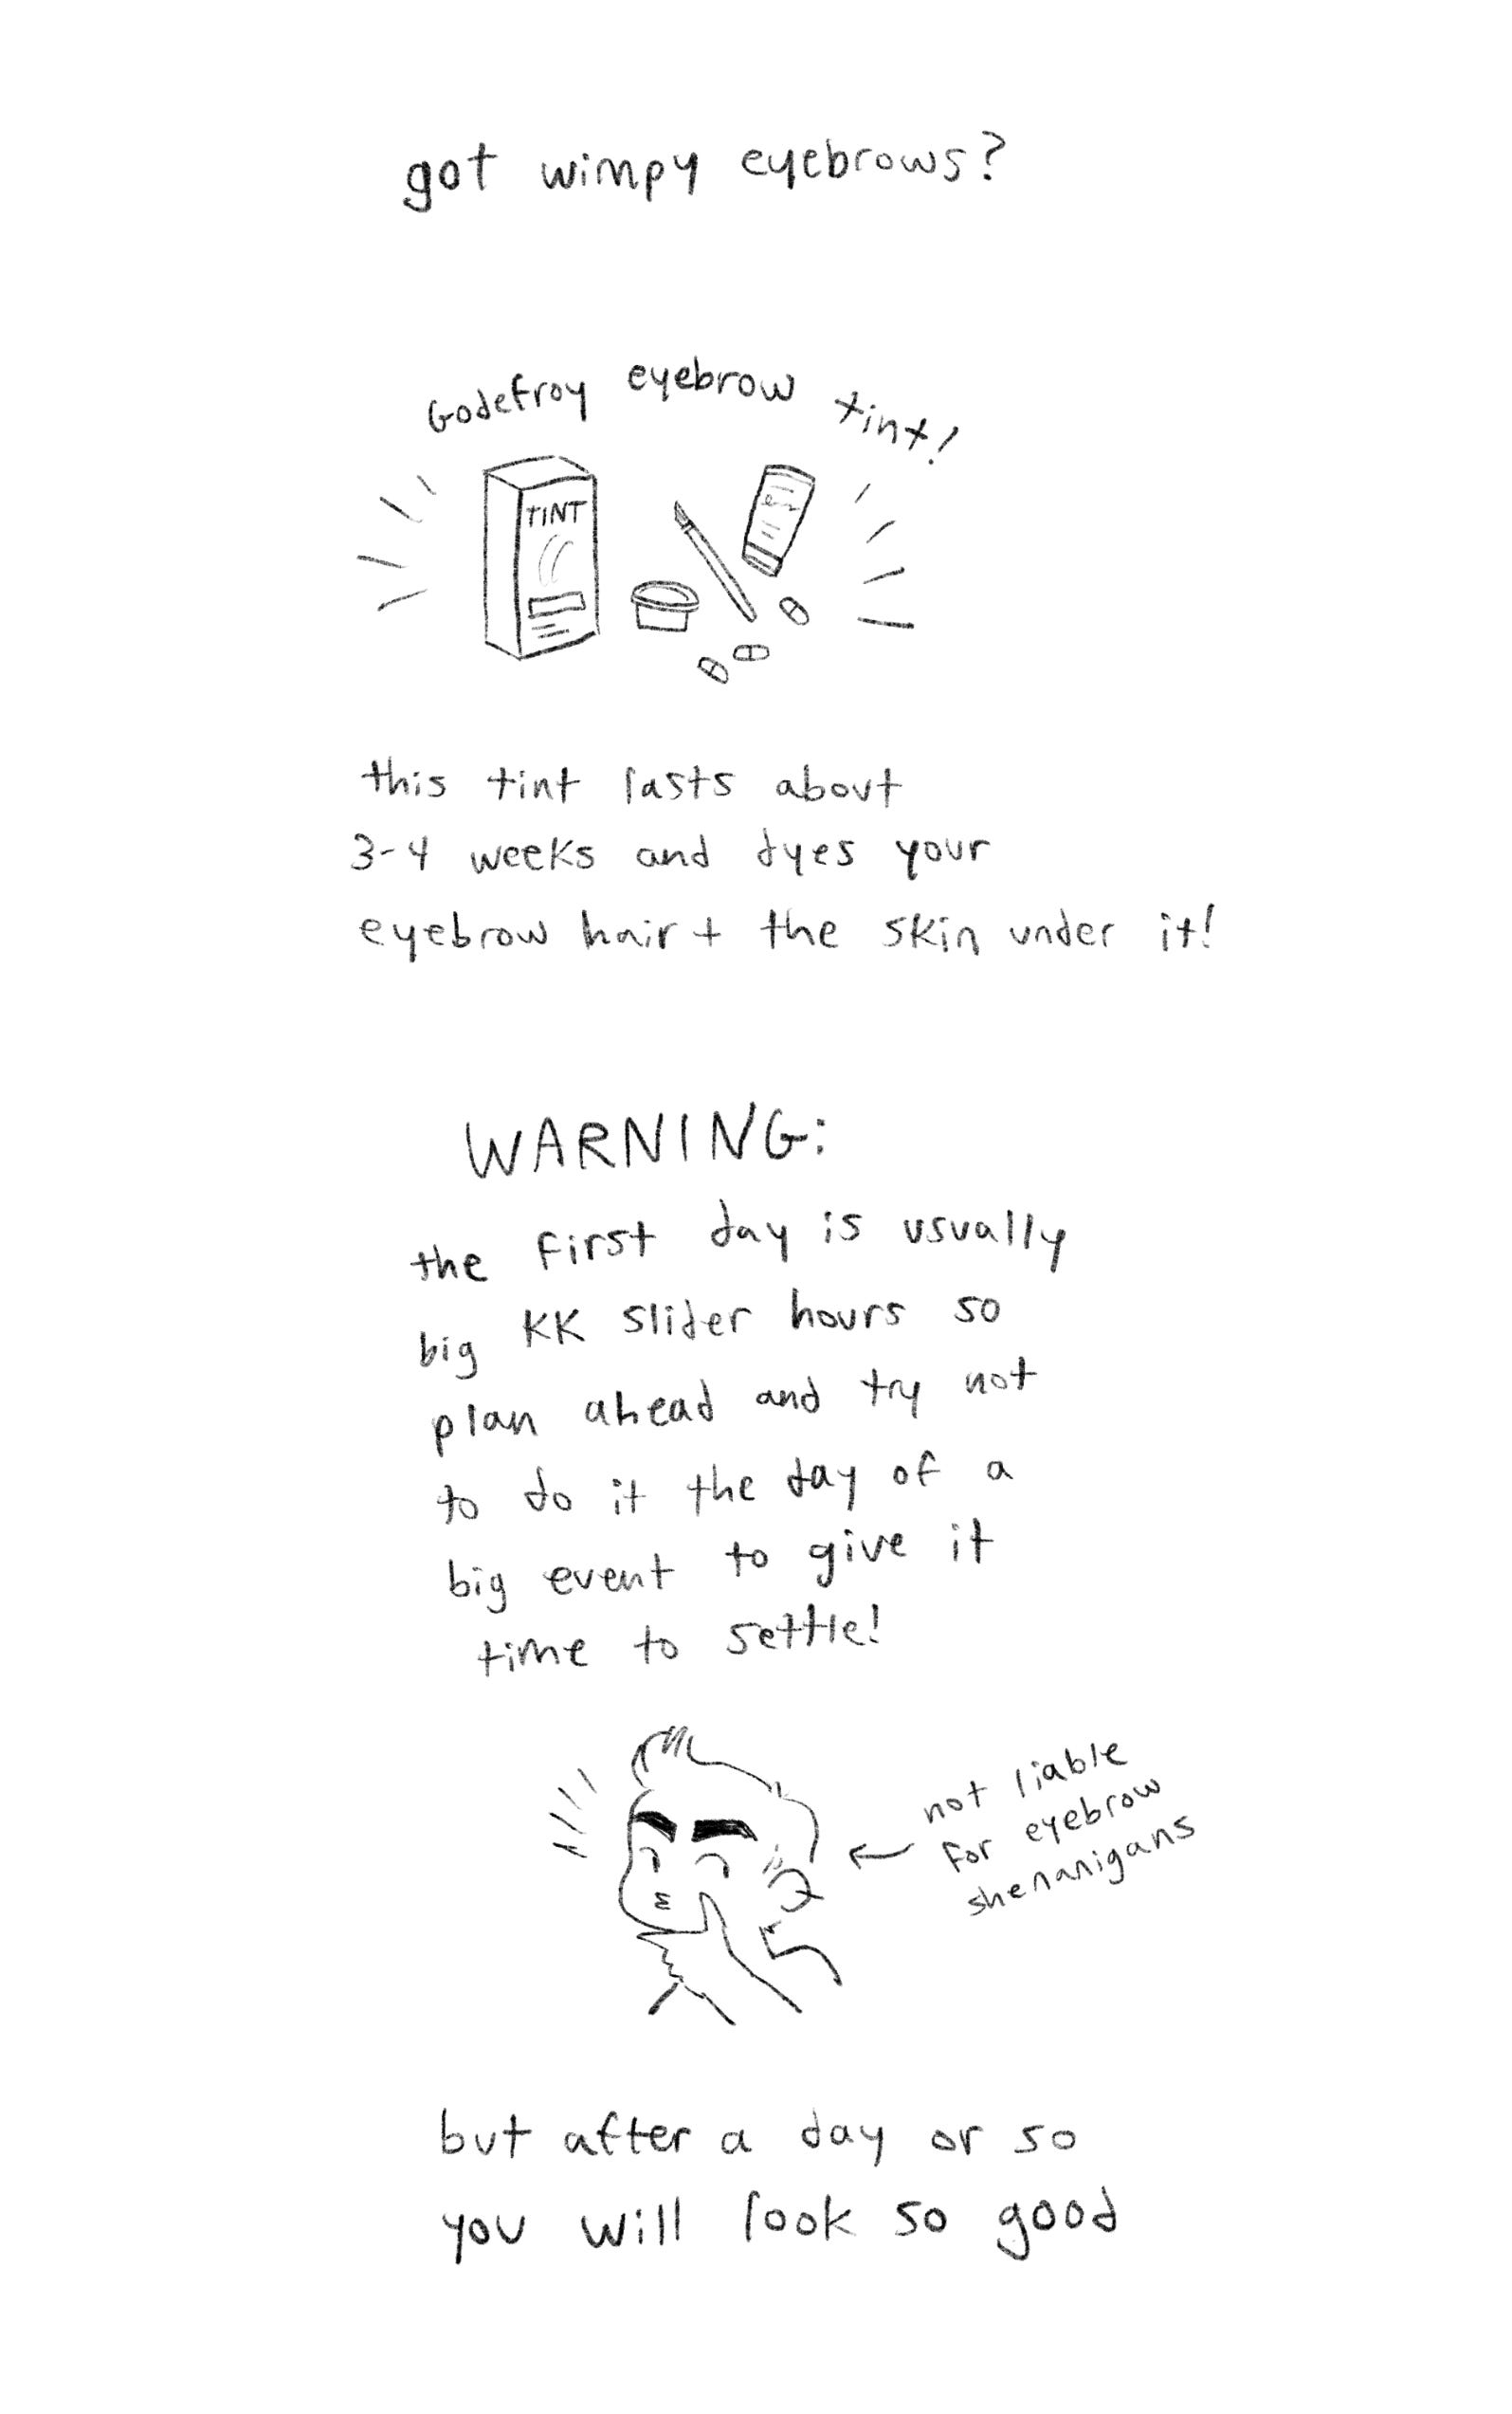 got wimpy eyebrows?
Godefroy eyebrow tint!
TINT
this tint lasts about
3-4 weeks and dyes your
eyebrow hair + the skin under it!
WARNING:
the first day is usually
big KK slider hours so
plan ahead and try not
to do it the day of a
big event to give it
time to settle!
not liable
for eyebrow
shenanigans
but after a day or so
you will look so good